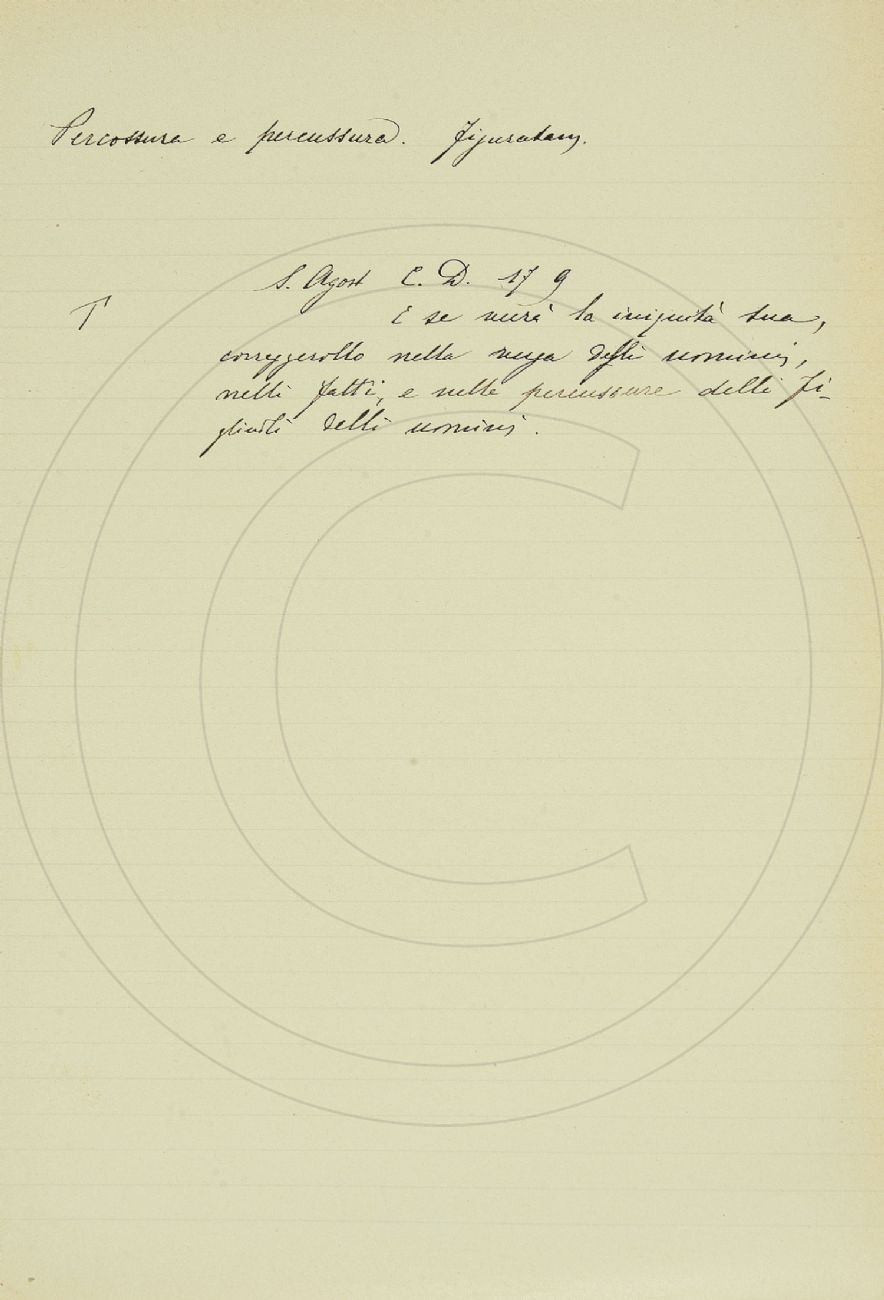 Percossura e percussura. Figuratam.
S. Agost C. D. 17 9
T
E se verrà la iniquità sua,
correggerollo nella verga degli uomini,
nelli fatti, e nelle percussure delli fi-
gliuoli delli uomini.